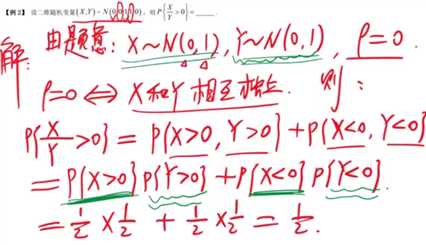 【例2】设二维随机变量(X,Y)~N(0,0;1,1;0),则P{X/Y>0}=____.
解: 由题意: X~N(0,1), Y~N(0,1), ρ=0.
ρ=0 ⟺ X和Y相互独立. 则:
P{X/Y>0} = P{X>0, Y>0} + P{X<0, Y<0}
= P{X>0} P{Y>0} + P{X<0} P{Y<0}.
= 1/2 × 1/2 + 1/2 × 1/2 = 1/2.